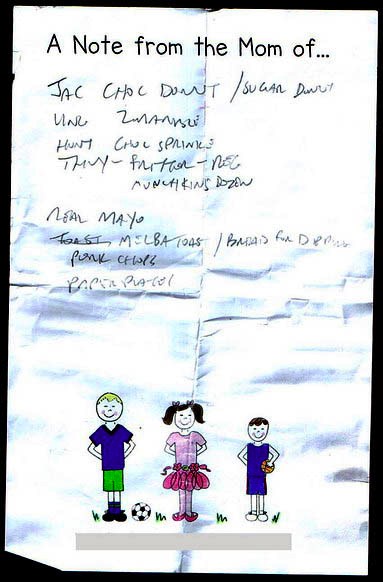 A Note from the Mom of...
JAC CHOC DONUT / SUGAR DONUT
HUNT CHOC SPRINKLE
FRITTER - REG
MUNCHKINS DOZEN
REAL MAYO
TOAST MELBA TOAST / BREAD FOR DIPPING
PORK CHOPS
PAPER PLATES